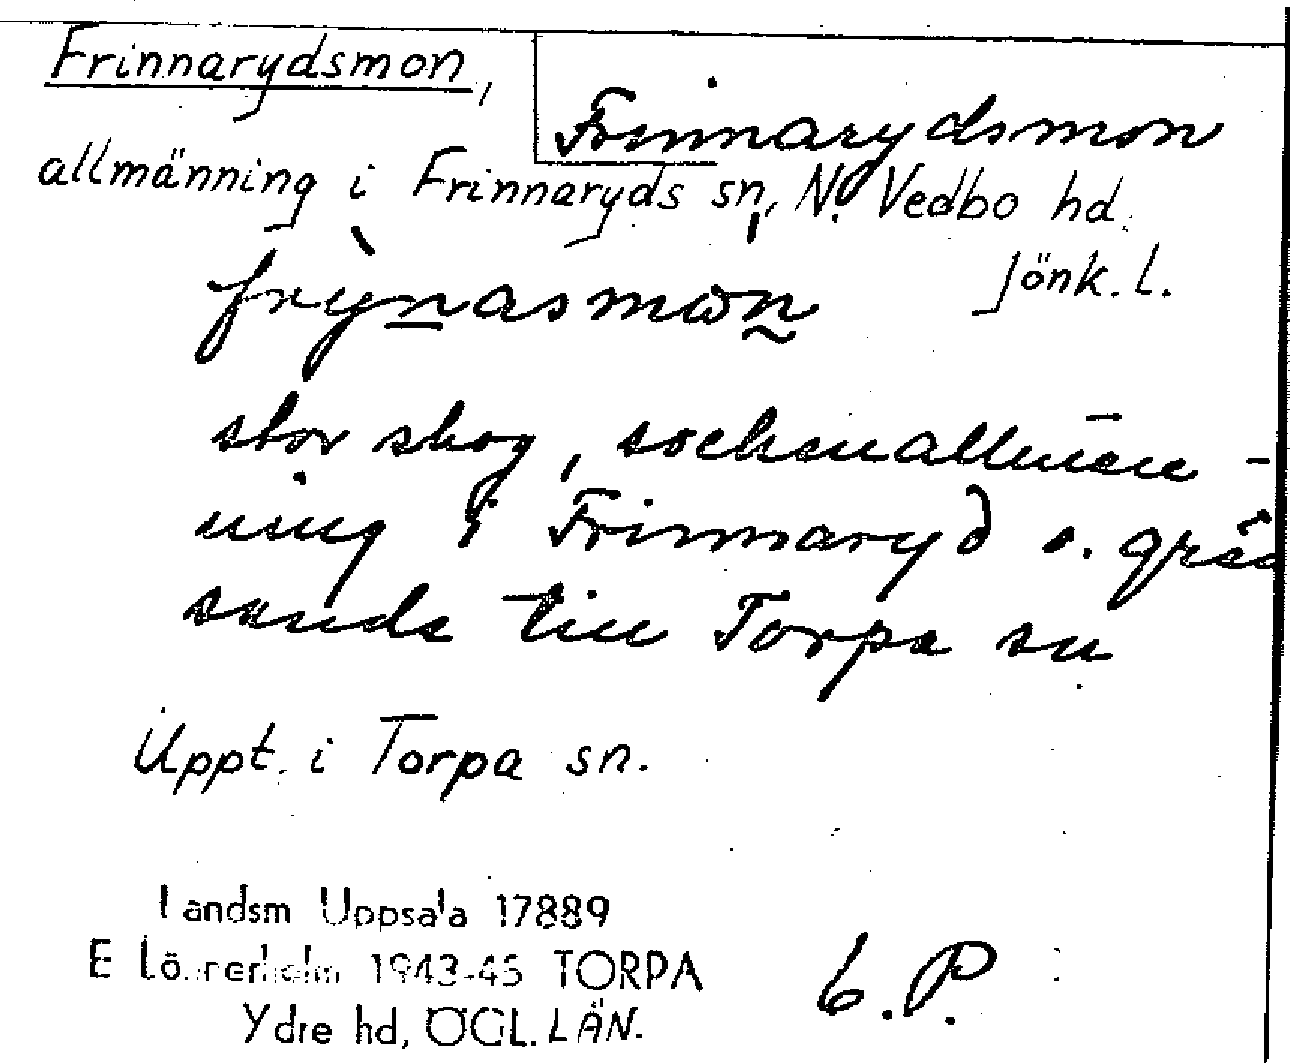 Frinnarydsmon,
Frinnarydsmon
allmänning i Frinnaryds sn, N. Vedbo hd.
Jönk. l.
frỳnasmɷn
stor skog, sockenallmän-
ning i Frinnaryd o. grän
sande till Torpa sn
Uppt. i Torpa sn.
Landsm Uppsala 17889
E Lönnerholm 1943-45 TORPA
Ydre hd, ÖGL. LÄN.
6. P.